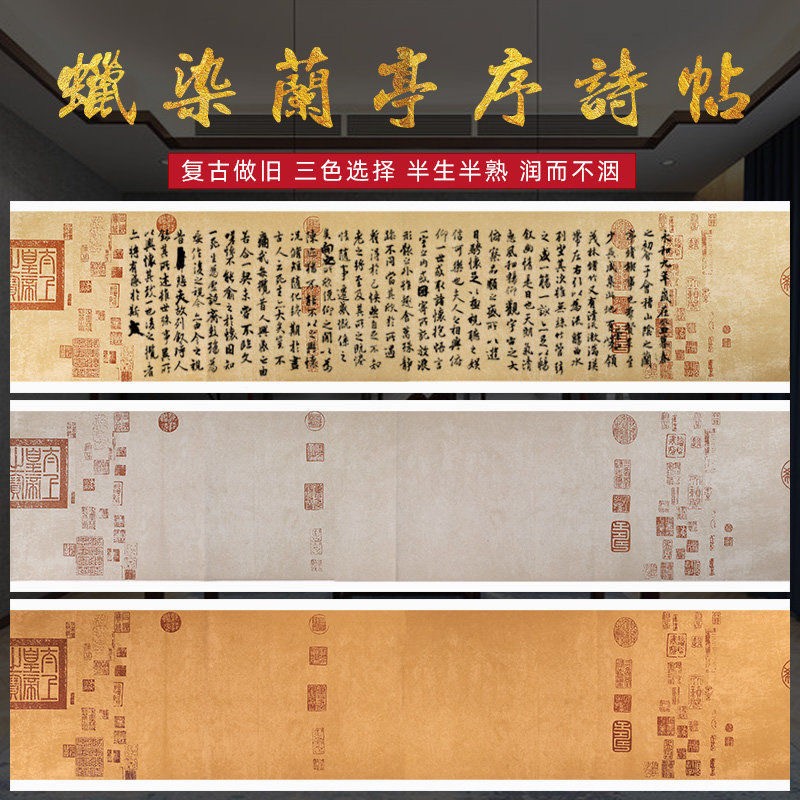 蠟染蘭亭序詩帖
复古做旧 三色选择 半生半熟 润而不洇
永和九年歲在癸丑暮春
之初會于會稽山陰之蘭
亭脩稧事也羣賢畢至
少長咸集此地有崇山峻領
茂林脩竹又有清流激湍暎
帶左右引以為流觴曲水
列坐其次雖無絲竹管弦
之盛一觴一詠亦足以暢
敘幽情是日也天朗氣清
惠風和暢仰觀宇宙之大
俯察品類之盛所以遊
目騁懷足以極視聽之娛
信可樂也夫人之相與俯
仰一世或取諸懷抱悟言
一室之內或因寄所託放浪
形骸之外雖趣舍萬殊靜
躁不同當其欣於所遇
暫得於己快然自足不知
老之將至及其所之既惓
情隨事遷感慨係之
矣向之所欣俛仰之閒以為
陳迹猶不能不以之興懷
況脩短隨化終期於盡
古人云死生亦大矣豈不
痛哉每攬昔人興感之由
若合一契未嘗不臨文
嗟悼不能喻之於懷固知
一死生為虛誕齊彭殤為
妄作後之視今亦由今之視
昔悲夫故列敘時人
錄其所述雖世殊事異所
以興懷其致一也後之攬者
亦將有感於斯文